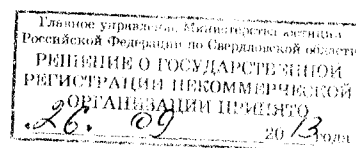 Главное управление Министерства юстиции
Российской Федерации по Свердловской области
РЕШЕНИЕ О ГОСУДАРСТВЕННОЙ
РЕГИСТРАЦИИ НЕКОММЕРЧЕСКОЙ
ОРГАНИЗАЦИИ ПРИНЯТО
26. 09 2013 года